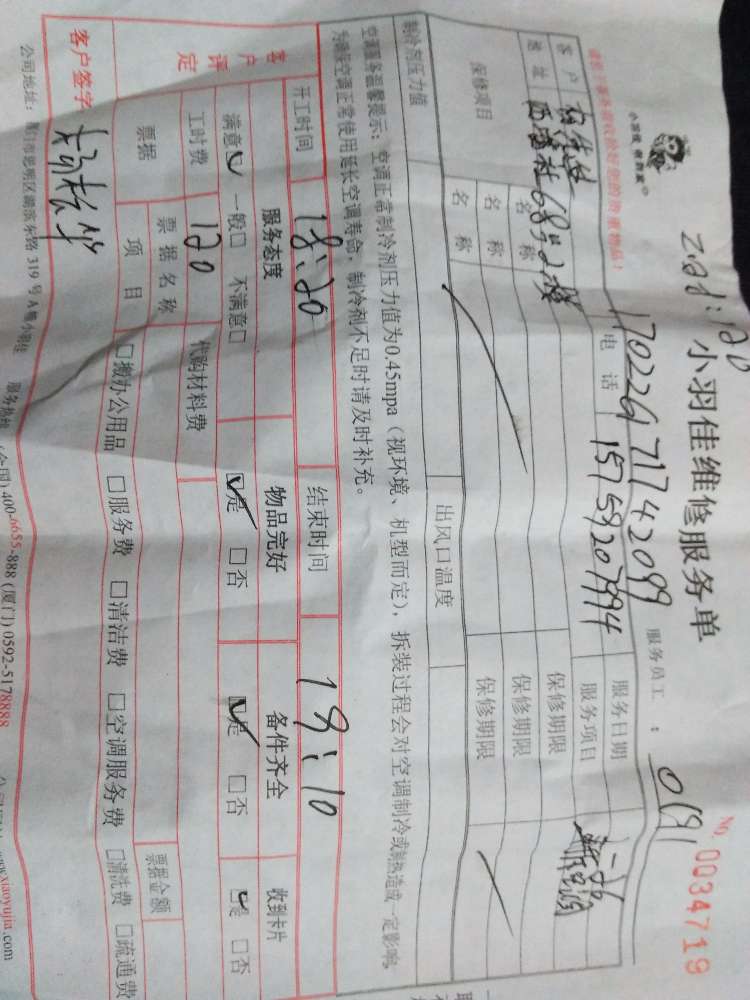 zad: 120
小羽佳维修服务单
NO. 0034719
小羽佳 做的就
17022G71742099
服务员工：019
客户
电话 15759207994
服务日期
地址 68号2楼
服务项目
保修项目
名称
保修期限
名称
保修期限
名称
保修期限
制冷剂压力值
出风口温度
空调顾客温馨提示：空调正常制冷剂压力值为0.45mpa（视环境、机型而定），拆装过程会对空调制冷或制热造成一定影响，
为确保空调正常使用延长空调寿命，制冷剂不足时请及时补充。
开工时间 18:20 结束时间 19:10
客户评定
服务态度 物品完好 备件齐全 收到卡片
满意☑ 一般□ 不满意□ ☑是 □否 ☑是 □否 ☑是 □否
工时费 120 代购材料费
票据 票据名称 票据金额
项目 □搬办公用品 □服务费 □清洁费 □空调服务费 □清洗费 □疏通费
客户签字
公司地址：厦门市思明区湖滨东路319号A 服务热线：(全国) 400-6655-888 (厦门) 0592-5178888 www.xiaoyujia.com